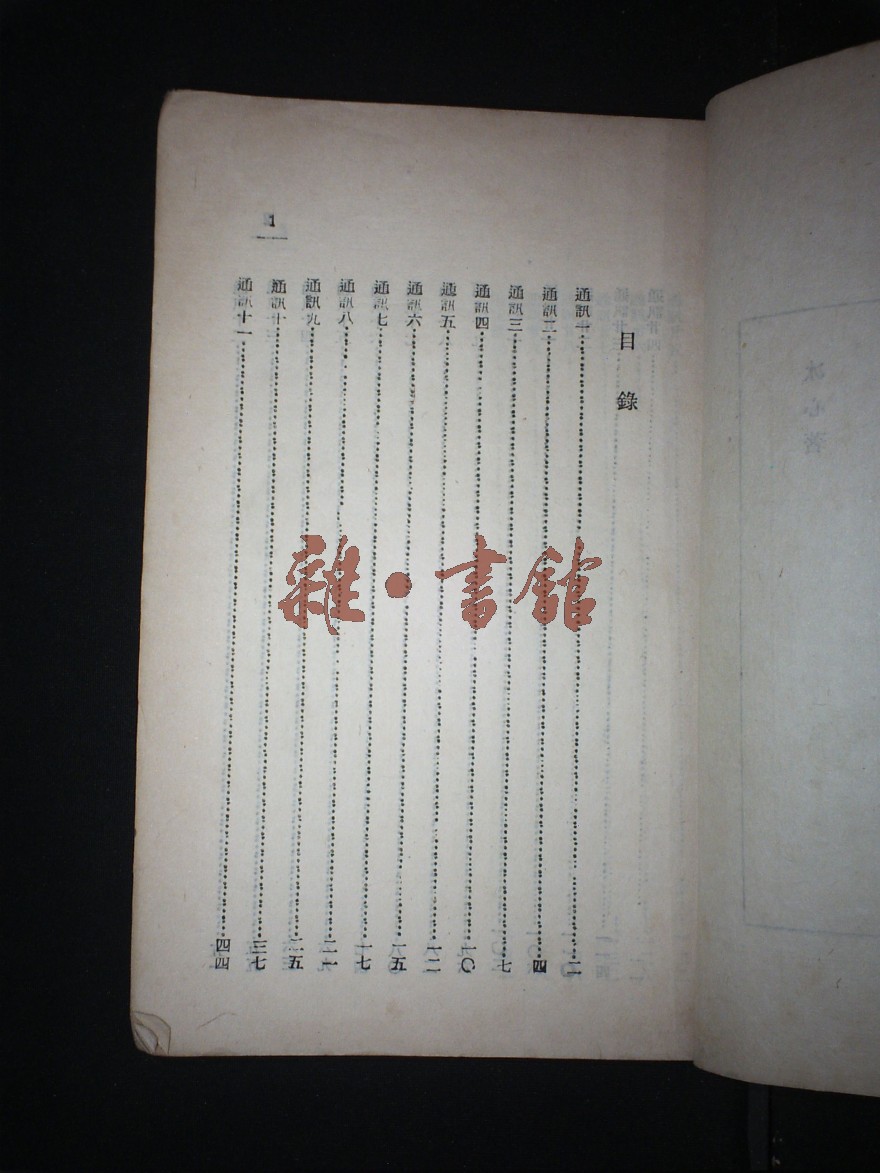 目錄
通訊一 二
通訊二 四
通訊三 七
通訊四 一〇
通訊五 一二
通訊六 一五
通訊七 一七
通訊八 二一
通訊九 二五
通訊十 三七
通訊十一 四四
1
雜·書館
冰心著